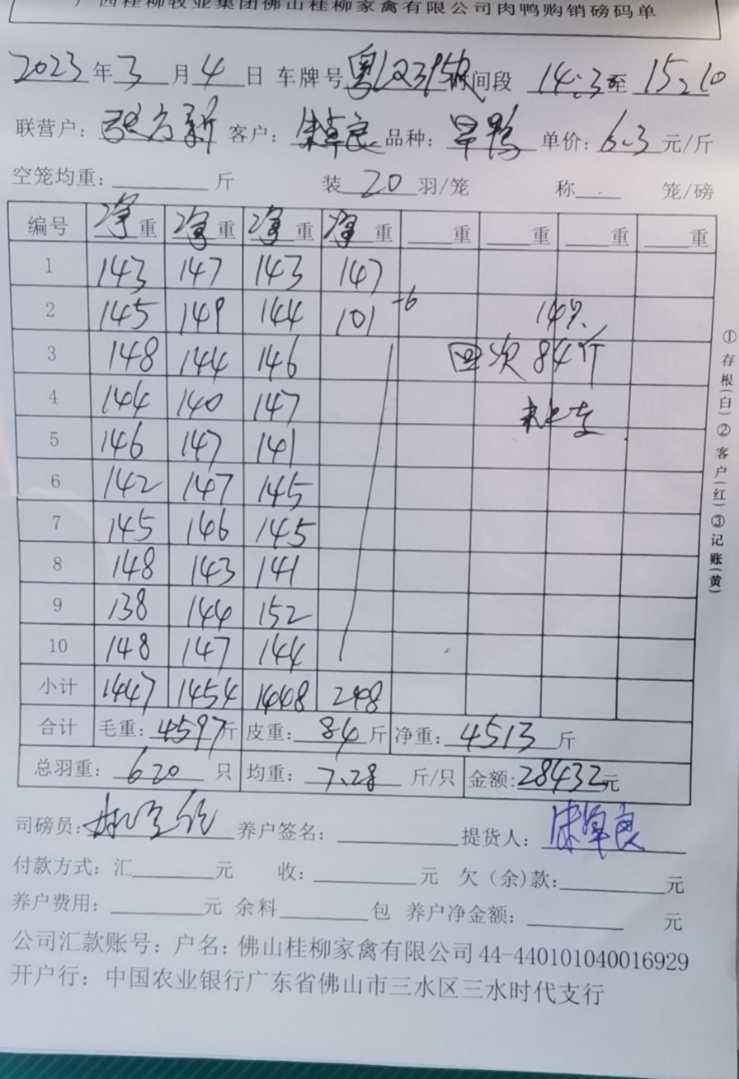 广西桂柳牧业集团佛山桂柳家禽有限公司肉鸭购销磅码单
2023年3月4日 车牌号 粤 时间段 14:3至15:10
联营户: 客户: 品种: 旱鸭 单价: 6.3元/斤
空笼均重: 斤 装20羽/笼 称 笼/磅
编号 净重 净重 净重 净重 重 重 重 重
1 143 147 143 147
2 145 149 144 101 -6
3 148 144 146 回次84斤
4 144 140 147
5 146 147 141
6 142 147 145
7 145 146 145
8 148 143 141
9 138 144 152
10 148 147 144
小计 1447 1454 1448 248
合计 毛重: 4597斤 皮重: 84斤 净重: 4513斤
总羽重: 620只 均重: 7.28斤/只 金额:28432元
司磅员: 养户签名: 提货人:
付款方式: 汇 元 收: 元 欠(余)款: 元
养户费用: 元 余料 包 养户净金额: 元
公司汇款账号: 户名: 佛山桂柳家禽有限公司 44-440101040016929
开户行: 中国农业银行广东省佛山市三水区三水时代支行
①存根(白)②客户(红)③记账(黄)